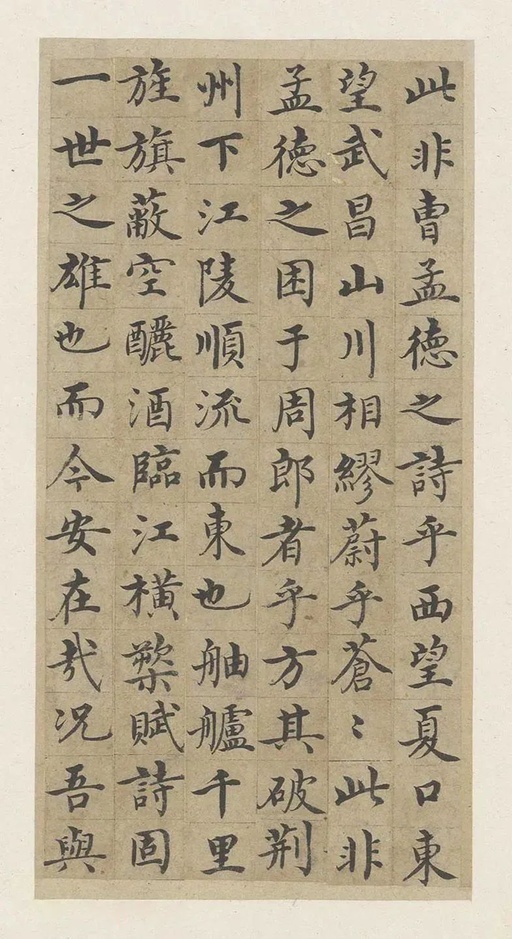 此非曹孟德之詩乎西望夏口東
望武昌山川相繆蔚乎蒼〻此非
孟德之困于周郎者乎方其破荆
州下江陵順流而東也舳艫千里
旌旗蔽空釃酒臨江橫槊賦詩固
一世之雄也而今安在㦲况吾與